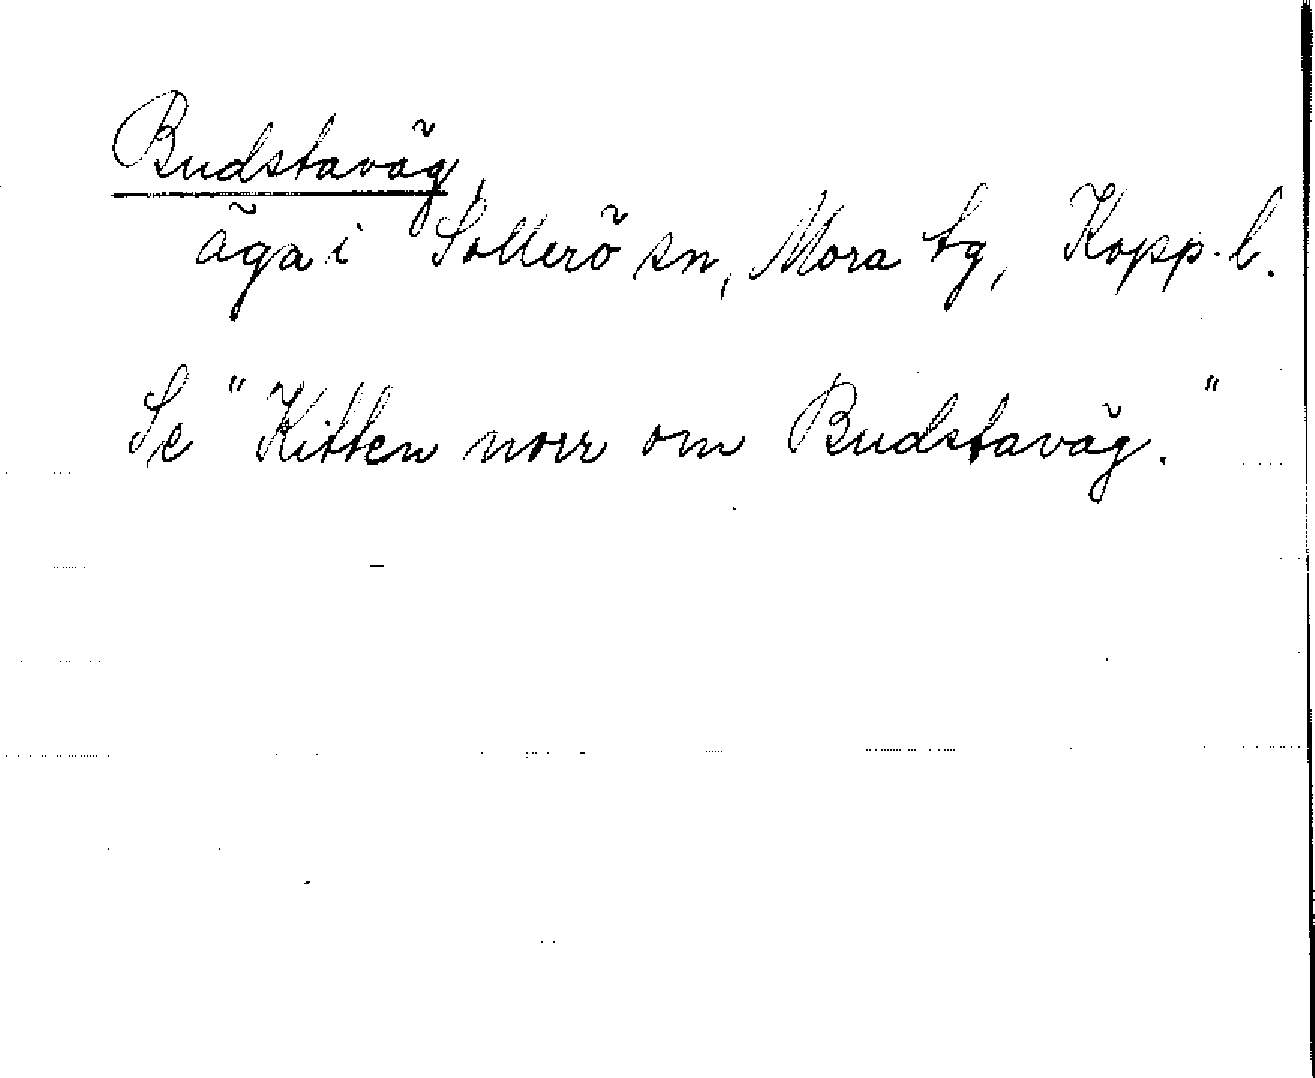 Budstaväg,
äga i Sollerö sn, Mora tg, Kopp. l.
Se "Kitten norr om Budstaväg."